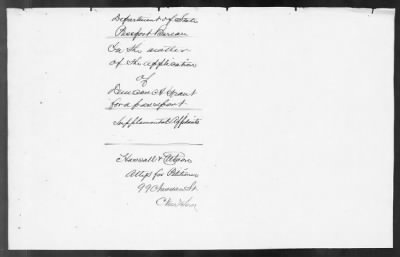 Department of State
Passport Bureau
In the matter
of the application
of
Duncan A Grant
for a passport
Supplemental Affidavits
Attys for Petitioner
99 Nassau St.